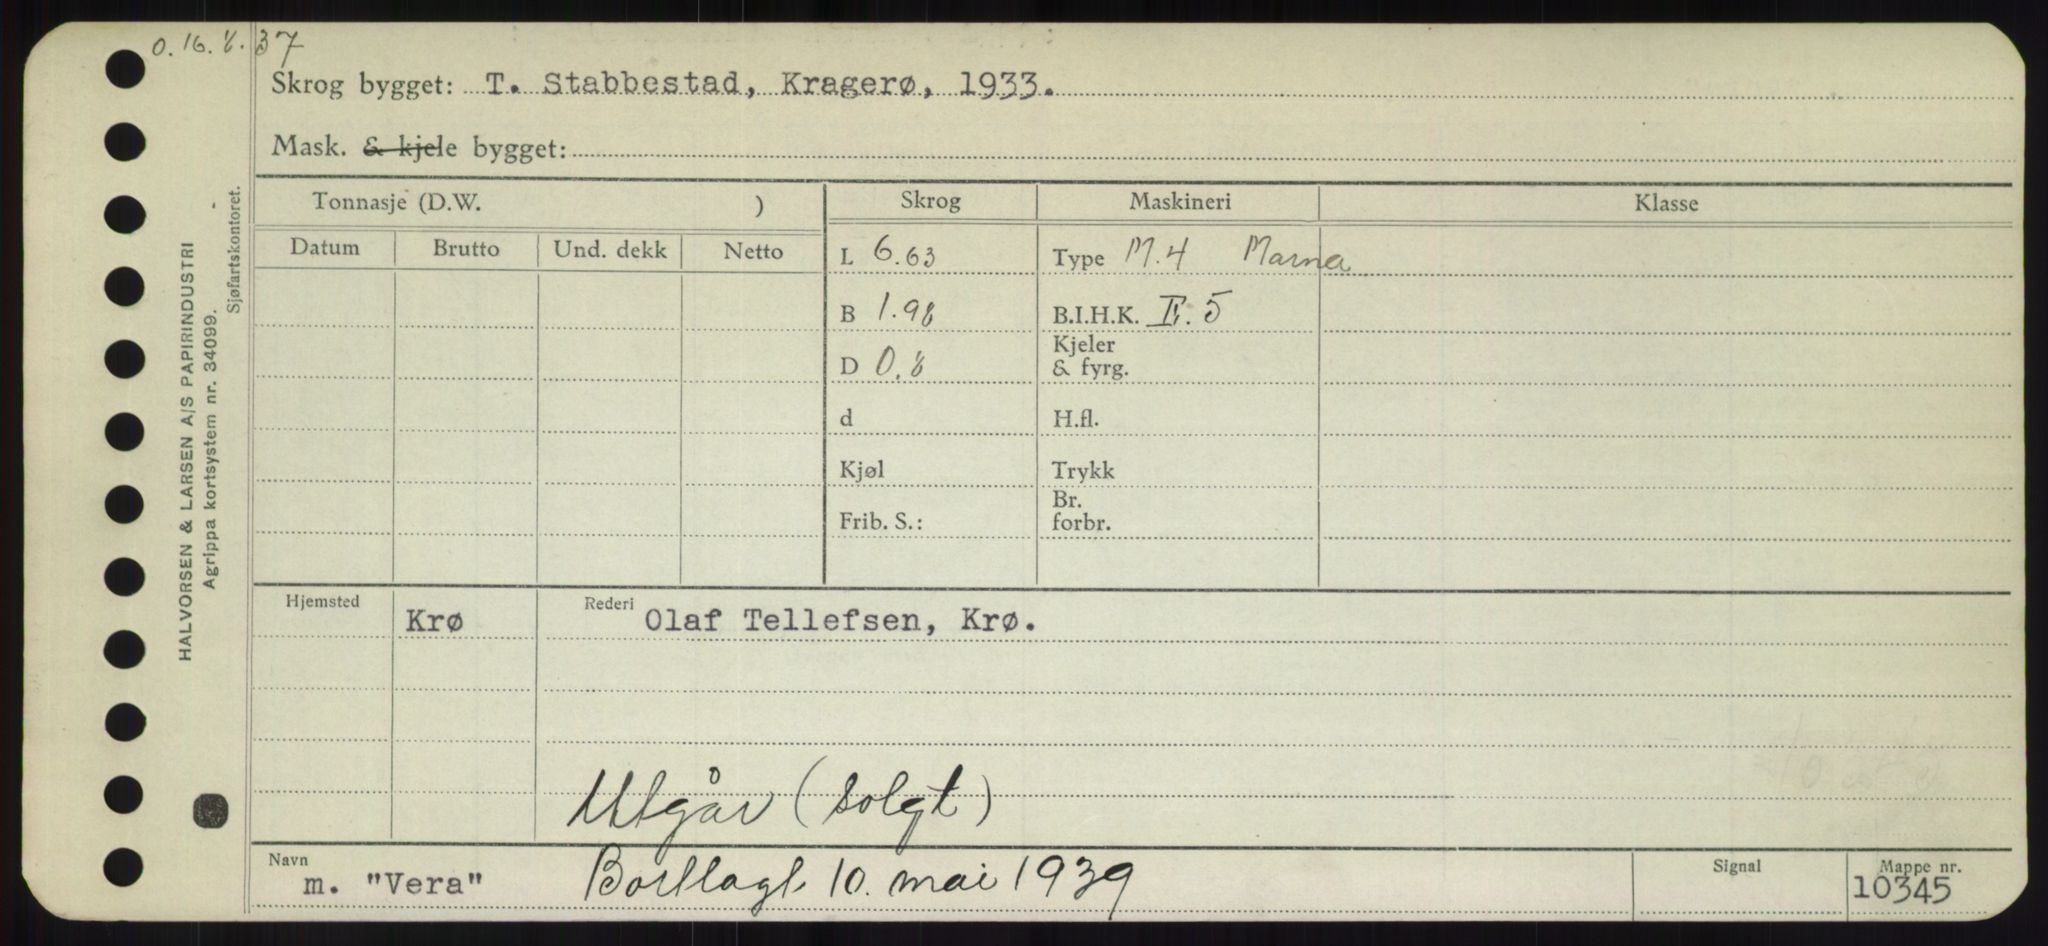 O. 16. 8. 37
Skrog bygget: T. Stabbestad, Kragerø, 1933.
Mask. & kjele bygget:
Tonnasje (D.W. )
Skrog Maskineri Klasse
Datum Brutto Und. dekk Netto
L 6.63 Type M.4 Marna
B 1.98 B.I.H.K. E. 5
D 0.8 Kjeler
& fyrg.
d H.fl.
Kjøl Trykk
Frib. S.: Br.
forbr.
Hjemsted Krø Rederi Olaf Tellefsen, Krø.
Utgår (solgt)
Navn m. "Vera" Bortlagt 10. mai 1939
Signal
Mappe nr. 10345
HALVORSEN & LARSEN A/S PAPIRINDUSTRI
Agrippa kortsystem nr. 34099.
Sjøfartskontoret.